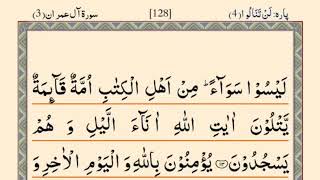 پارہ: لَنْ تَنَالُوا (4) [128] سورۃ آل عمران (3)
لَيْسُوْا سَوَآءً ؕ مِنْ اَهْلِ الْكِتٰبِ اُمَّةٌ قَآىِٕمَةٌ
يَّتْلُوْنَ اٰيٰتِ اللّٰهِ اٰنَآءَ الَّيْلِ وَ هُمْ
يَسْجُدُوْنَ ۝۱۱۳ يُؤْمِنُوْنَ بِاللّٰهِ وَ الْيَوْمِ الْاٰخِرِ وَ